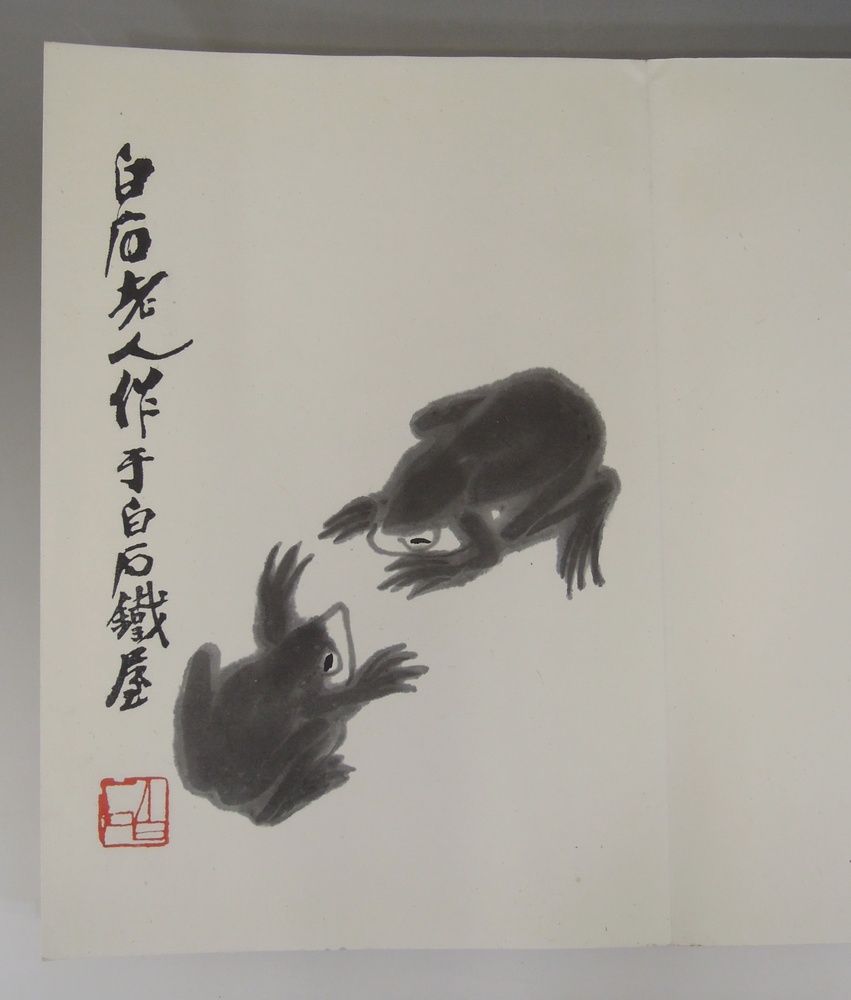 白石老人作于白石鐵屋
白石